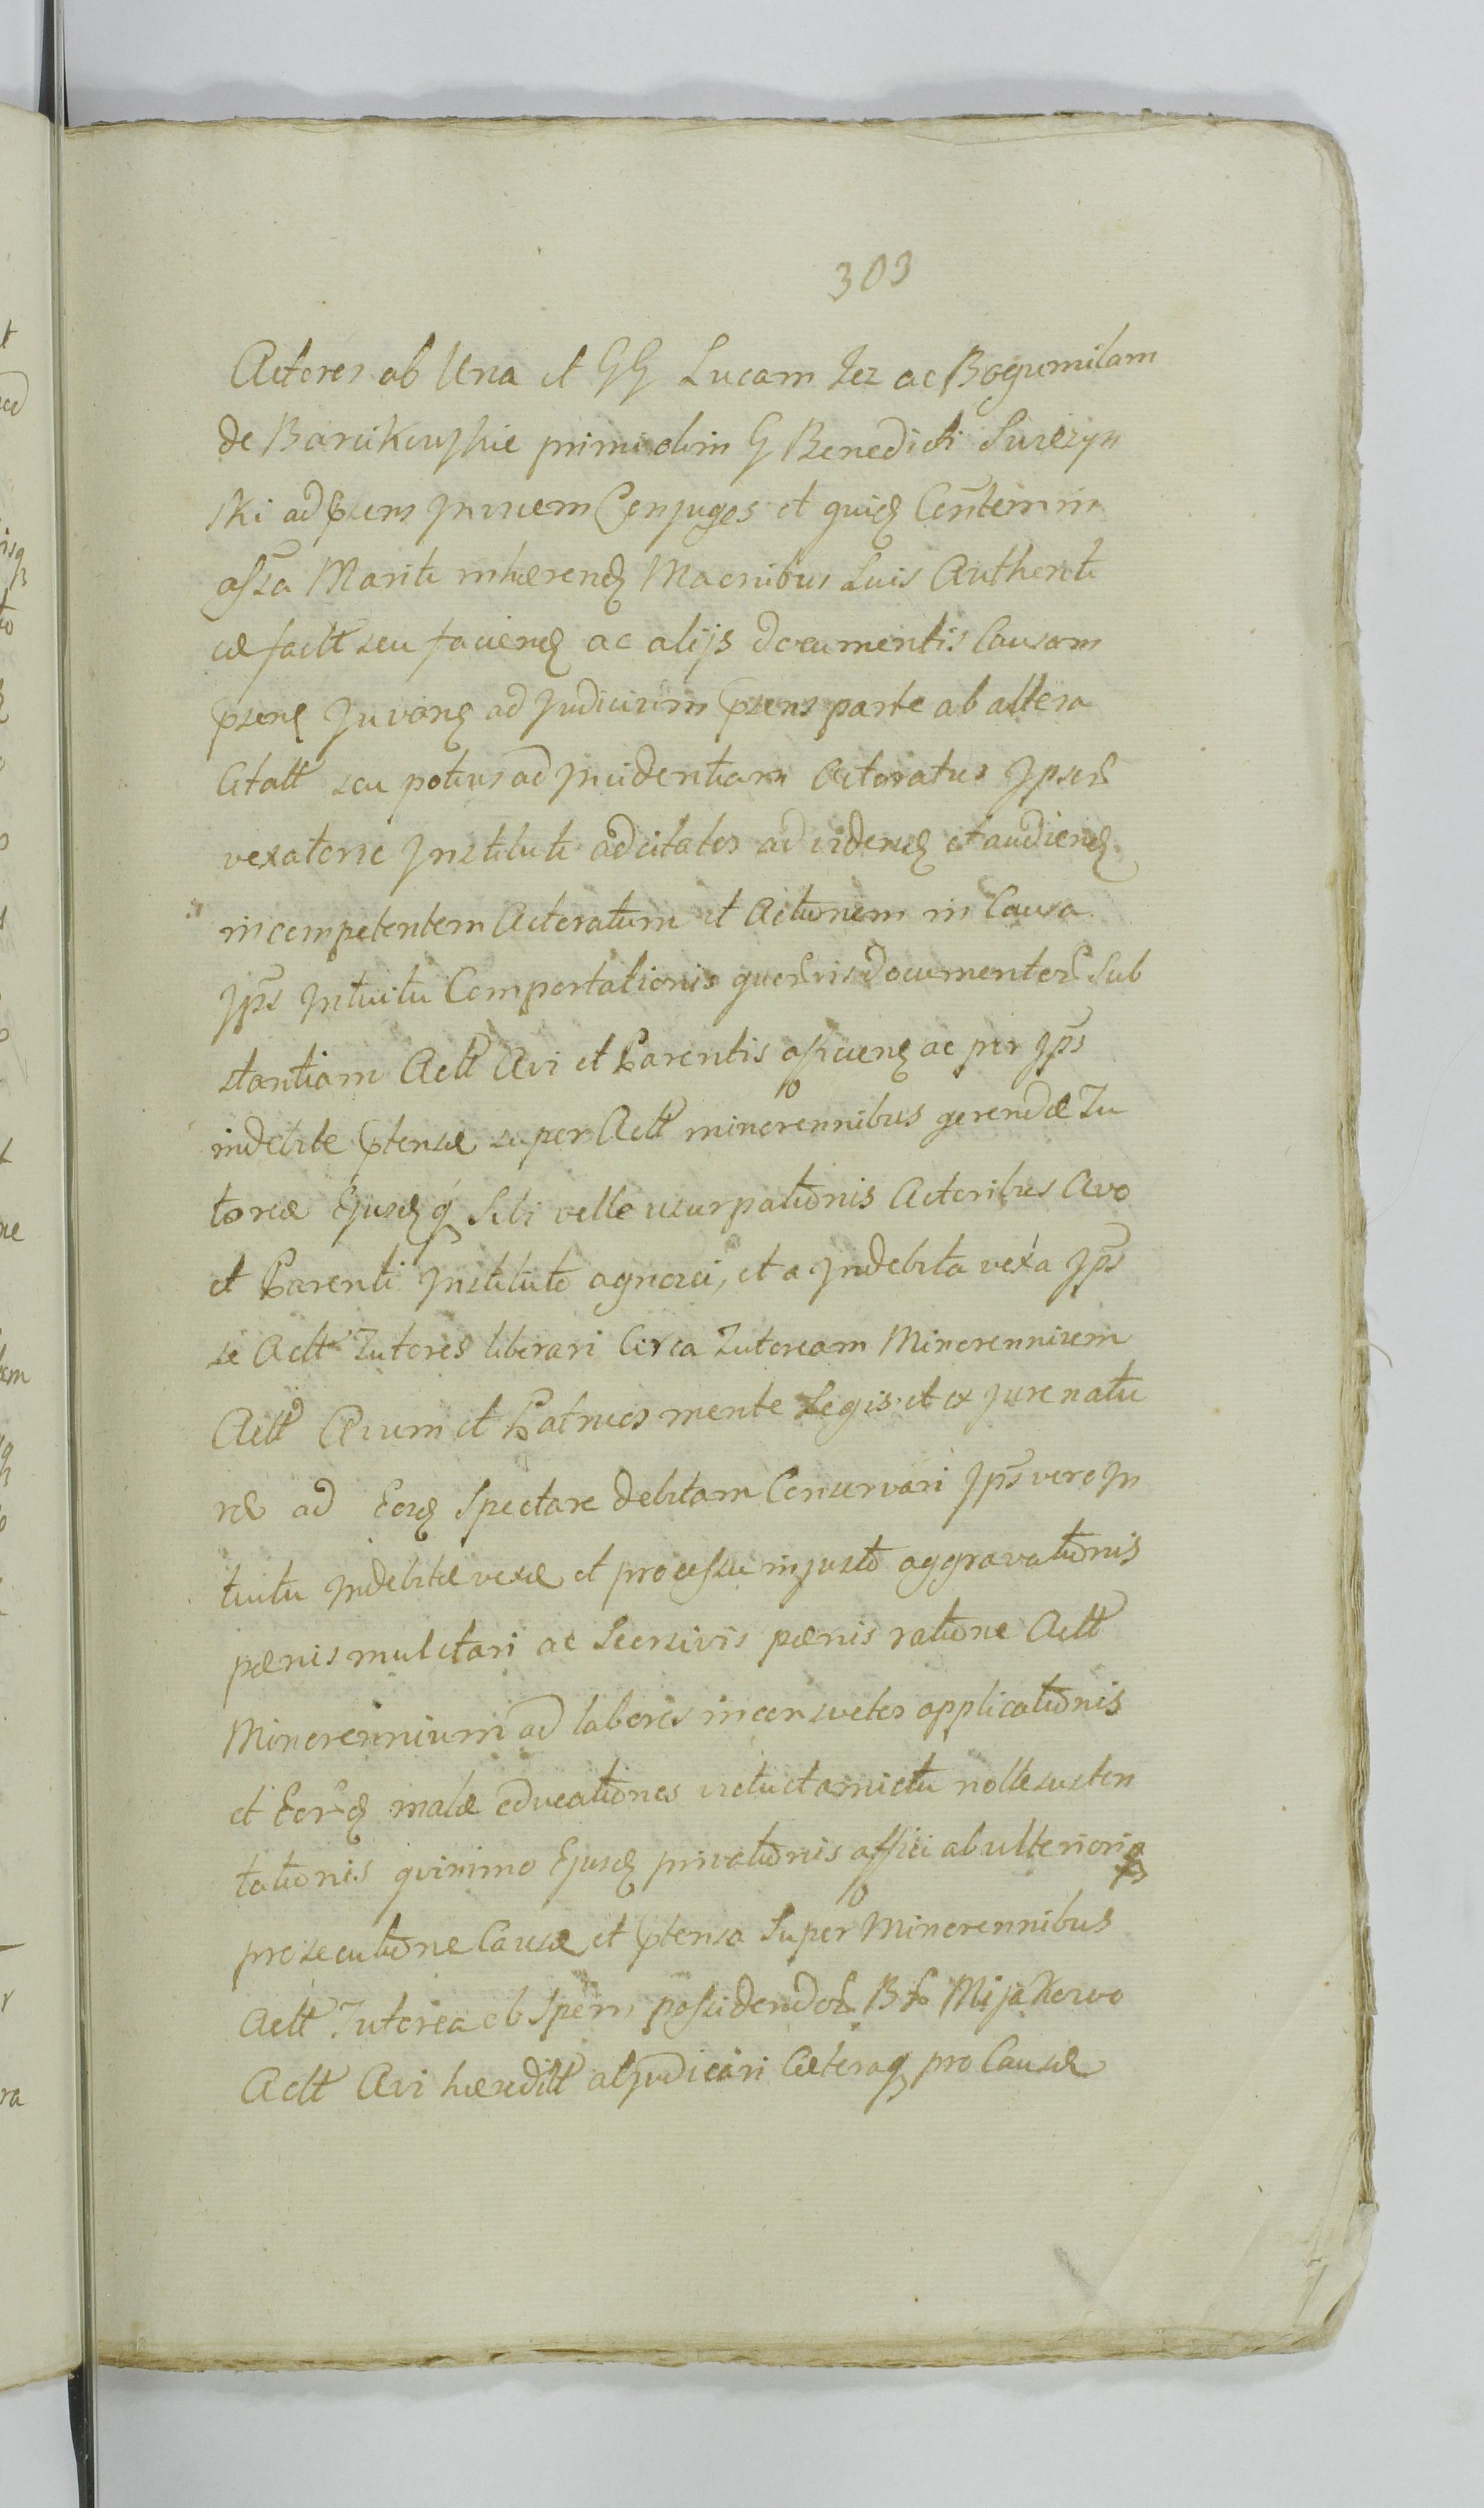 303
Actores ab Una et GG Lucam Jez ac Bogumilam
de Barcikowskie primi olim G Benedicti Surczyn
ski ad praesens Conjuges et quidq
assa Mariti inhaerend Suis Authenti
ce factt seu faciend ac alijs documentis Causam
psend Juvand ad Judicium psens parte ab altera
Citatt seu potius ad Incidentiam Actoratus Ipsor
vexatorie Instituti adcitatos ad videnq et audienq
incompetentem Actoratum et Actionem in Causa
Jps Intuitu Comportationis quorvis documentor Sub
stantiam Actt Avi et Parentis afficienq ac per Jps
indebite ptensae super Actt minorennibus gerendae Tu
toriae Ejusq q Sibi velle usurpationis Actoribus Avo
et Parenti Instituto agnosci, et a Indebita vexa Jps
se Actt Tutores liberari Circa Tutoream Minorennium
Actt Avum et Patruos mente Legis et ex jure natu
rae ad Eosq Spectare debitam Conservari Jps vero In
tuitu Indebitae vexae et processu injusto aggravationis
paenis mulctari ac Seorsivis paenis ratione Actt
Minorennium ad labores inconsvetos applicationis
et Eorq malae educationes victu et amictu nolle susten
tationis quinimo Ejusq privationis affici ab ulteriori
prosecutione Causae et ptensa Super Minorennibus
Actt Tutorea ob Spem possidendor B Mijakowo
Actt Avi haereditt abjudicari Caeteraq pro Causae